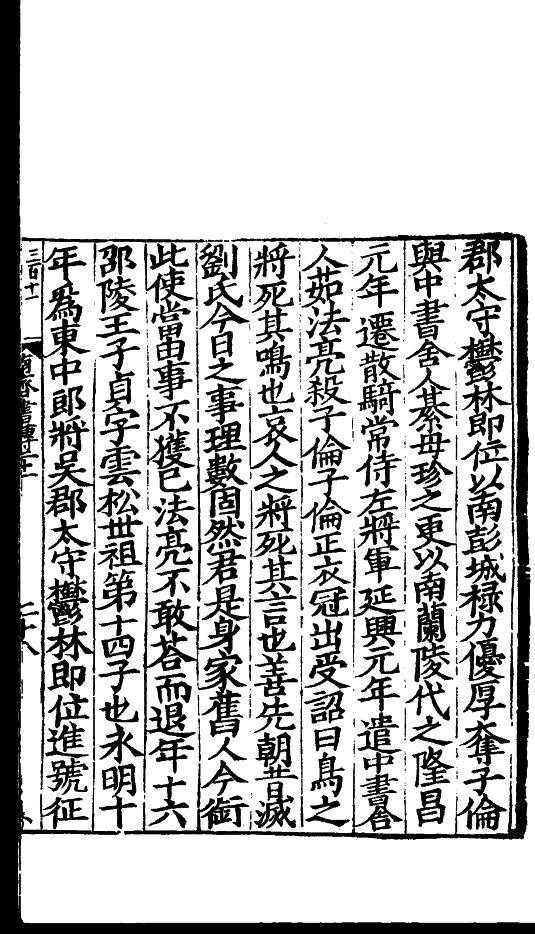 郡太守鬱林即位以南彭城祿力優厚奪子倫
與中書舍人綦毋珍之更以南蘭陵代之隆昌
元年遷散騎常侍左將軍延興元年遣中書舍
人茹法亮殺子倫子倫正衣冠出受詔曰鳥之
將死其鳴也哀人之將死其言也善先朝昔滅
劉氏今日之事理數固然君是身家舊人今銜
此使當由事不獲已法亮不敢荅而退年十六
邵陵王子貞字雲松世祖第十四子也永明十
年爲東中郎將吳郡太守鬱林即位進號征
二十八